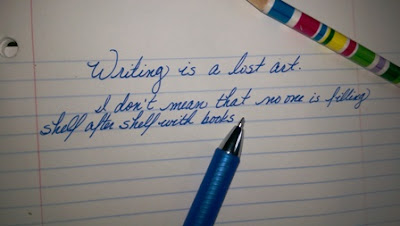 Writing is a lost art.
I don't mean that no one is filling
shelf after shelf with books